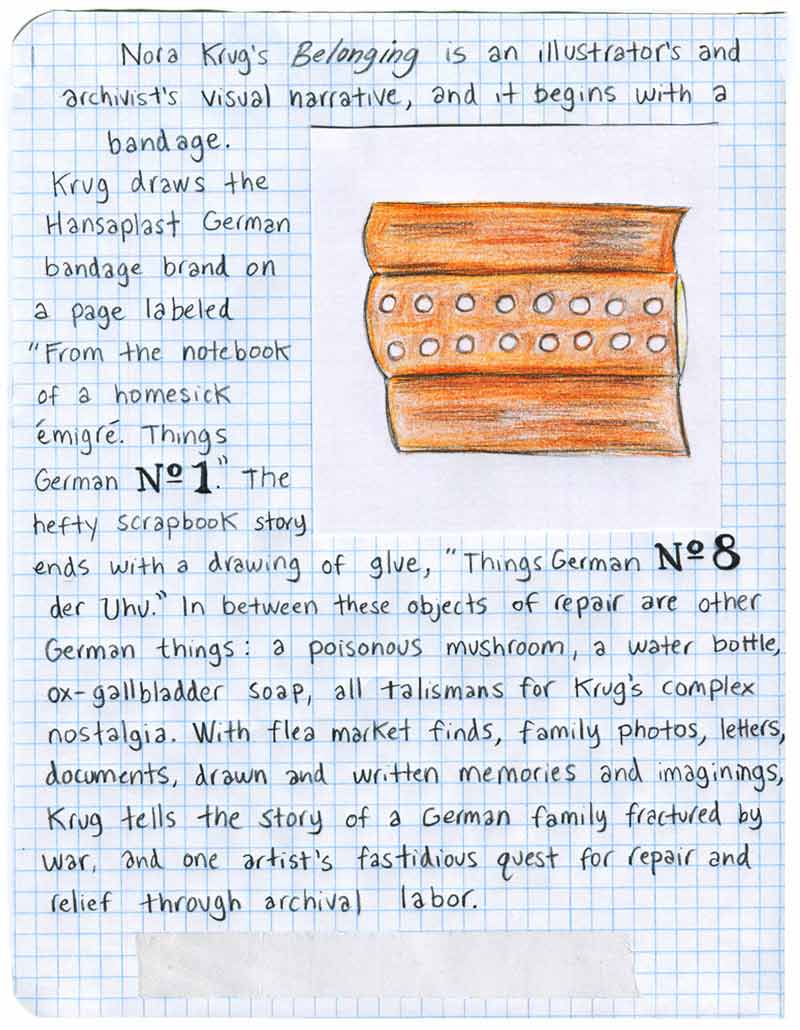 Nora Krug's Belonging is an illustrator's and
archivist's visual narrative, and it begins with a
bandage.
Krug draws the
Hansaplast German
bandage brand on
a page labeled
"From the notebook
of a homesick
émigré. Things
German Nº 1." The
hefty scrapbook story
ends with a drawing of glue, "Things German Nº 8
der Uhu." In between these objects of repair are other
German things: a poisonous mushroom, a water bottle,
ox-gallbladder soap, all talismans for Krug's complex
nostalgia. With flea market finds, family photos, letters,
documents, drawn and written memories and imaginings,
Krug tells the story of a German family fractured by
war, and one artist's fastidious quest for repair and
relief through archival labor.